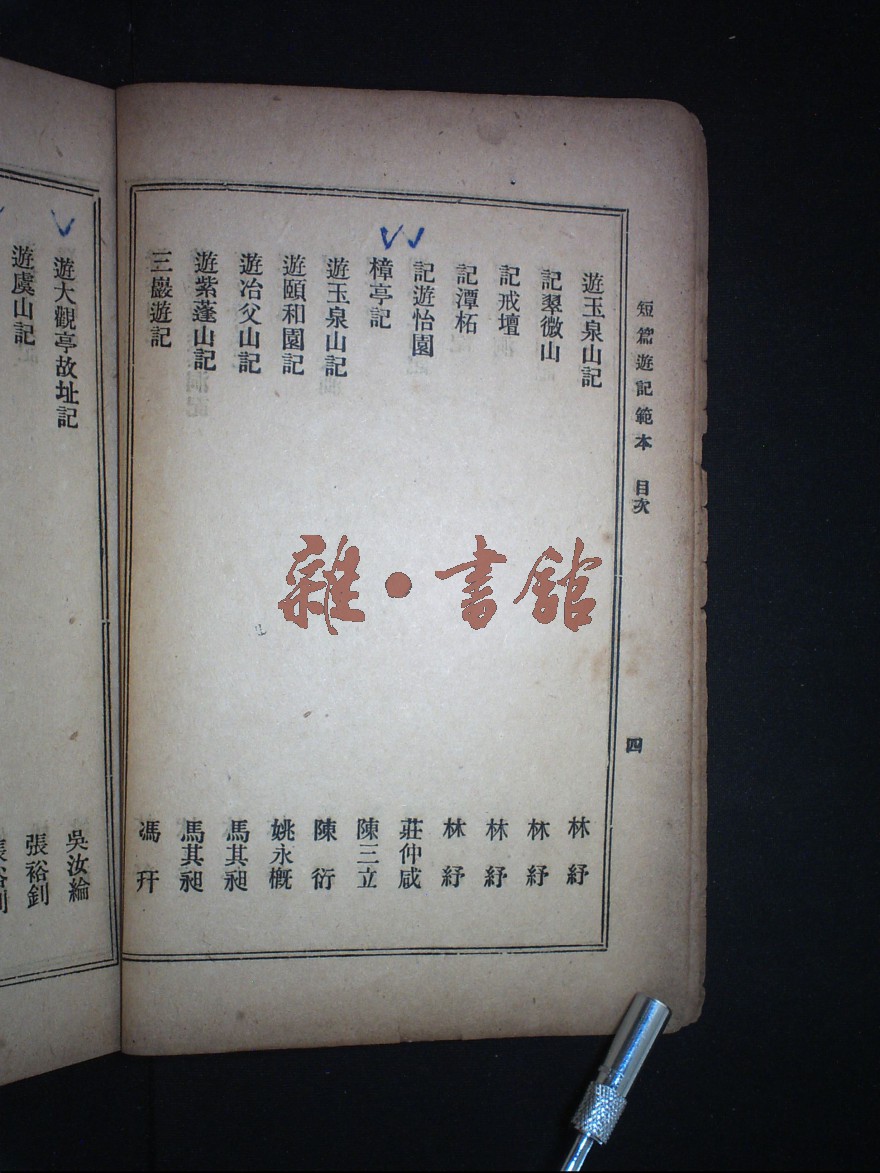 短篇遊記範本 目次 四
遊玉泉山記 林紓
記翠微山 林紓
記戒壇 林紓
記潭柘 林紓
記遊怡園 莊仲咸
樟亭記 陳三立
遊玉泉山記 陳衍
遊頤和園記 姚永概
遊冶父山記 馬其昶
遊紫蓬山記 馬其昶
三巖遊記 馮幵
遊大觀亭故址記 吳汝綸
遊虞山記 張裕釗
雜·書館